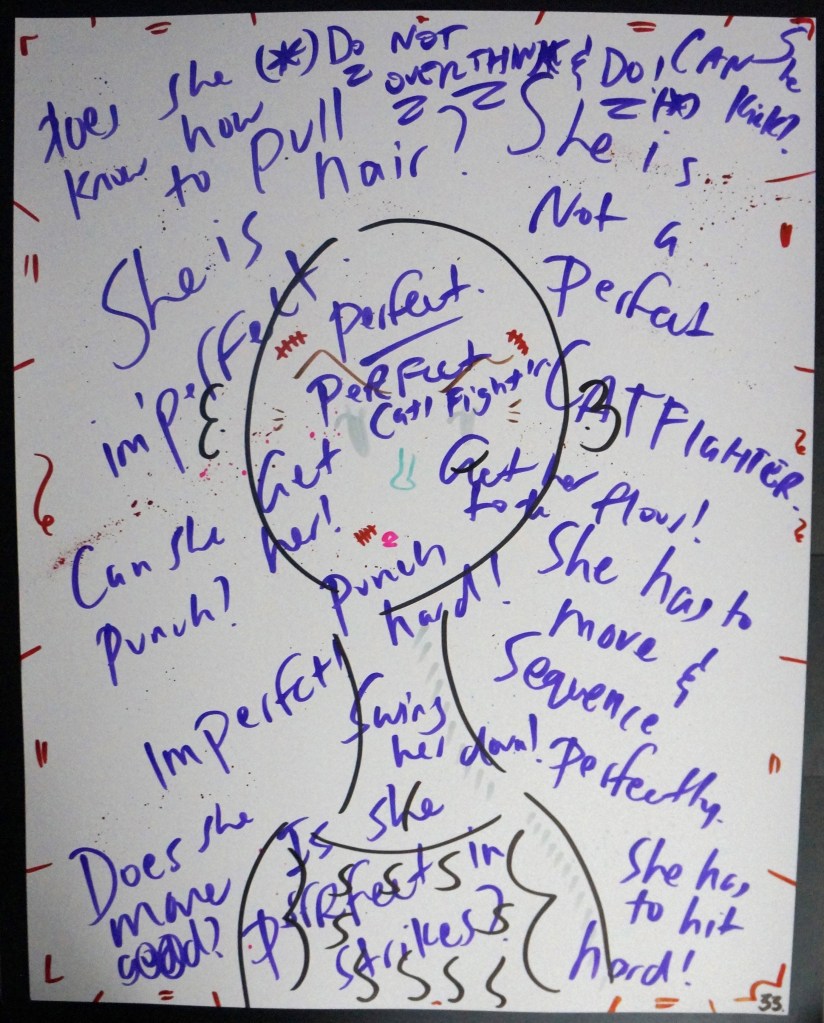 Does she (*) Do NOT
OVERTHINK & DO! CAN She
(*) Kick?
know how
to pull
hair?
She is
Not a
Perfect
CATFIGHTER.
She is
imperfect.
perfect.
PERFECT
Catfight
Get
her!
Get her
to the floor!
Can she
punch?
punch
hard!
She has to
move &
Sequence
Perfectly.
Imperfect!
Swing
her down!
Does she
move
good?
Is she
PERFECT in
strikes?
S S S S
S S
S S S S
She has
to hit
hard!
33.